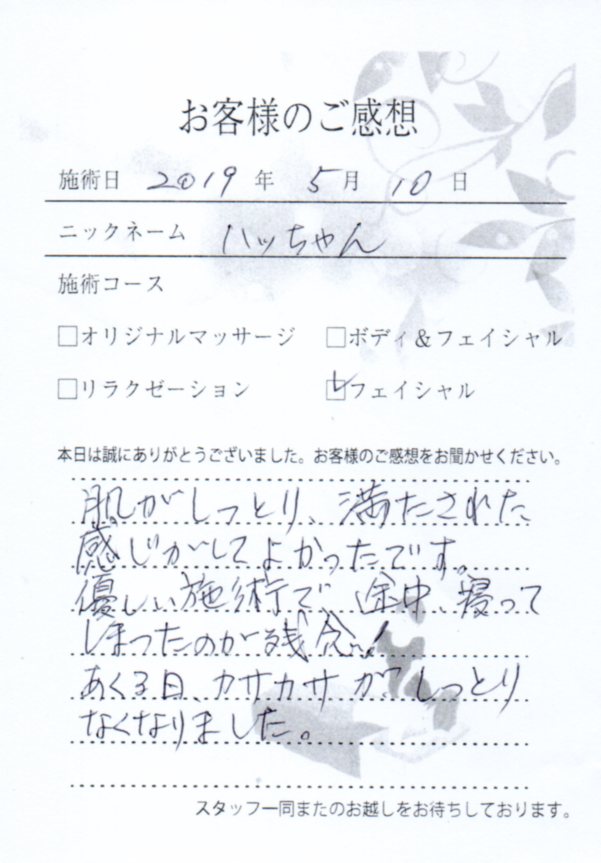 お客様のご感想
施術日 2019年 5月 10日
ニックネーム ハッちゃん
施術コース
□オリジナルマッサージ □ボディ&フェイシャル
□リラクゼーション ☑フェイシャル
本日は誠にありがとうございました。お客様のご感想をお聞かせください。
肌がしっとり、満たされた
感じがしてよかったです。
優しい施術で 途中、寝って
しまったのが残念!
あくる日、カサカサが しっとり
なくなりました。
スタッフ一同またのお越しをお待ちしております。